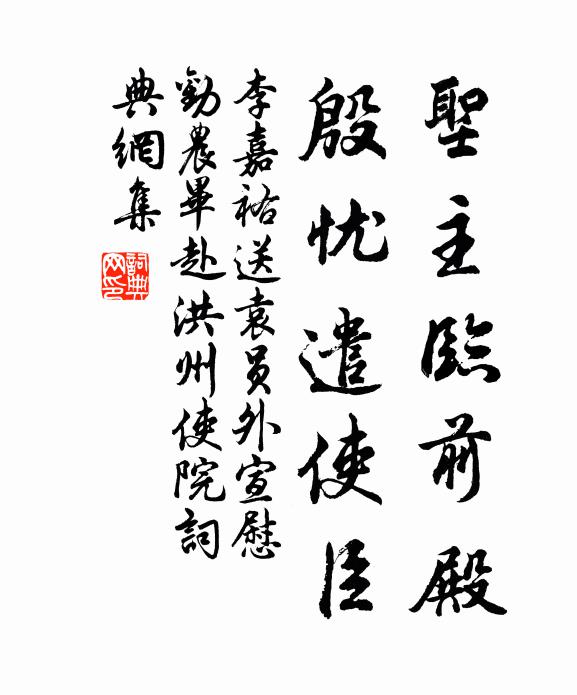 聖主臨前殿
殷忧遣使臣
李嘉祐送袁员外宣慰
勸農畢赴洪州使院詞
典網集
詞典网印